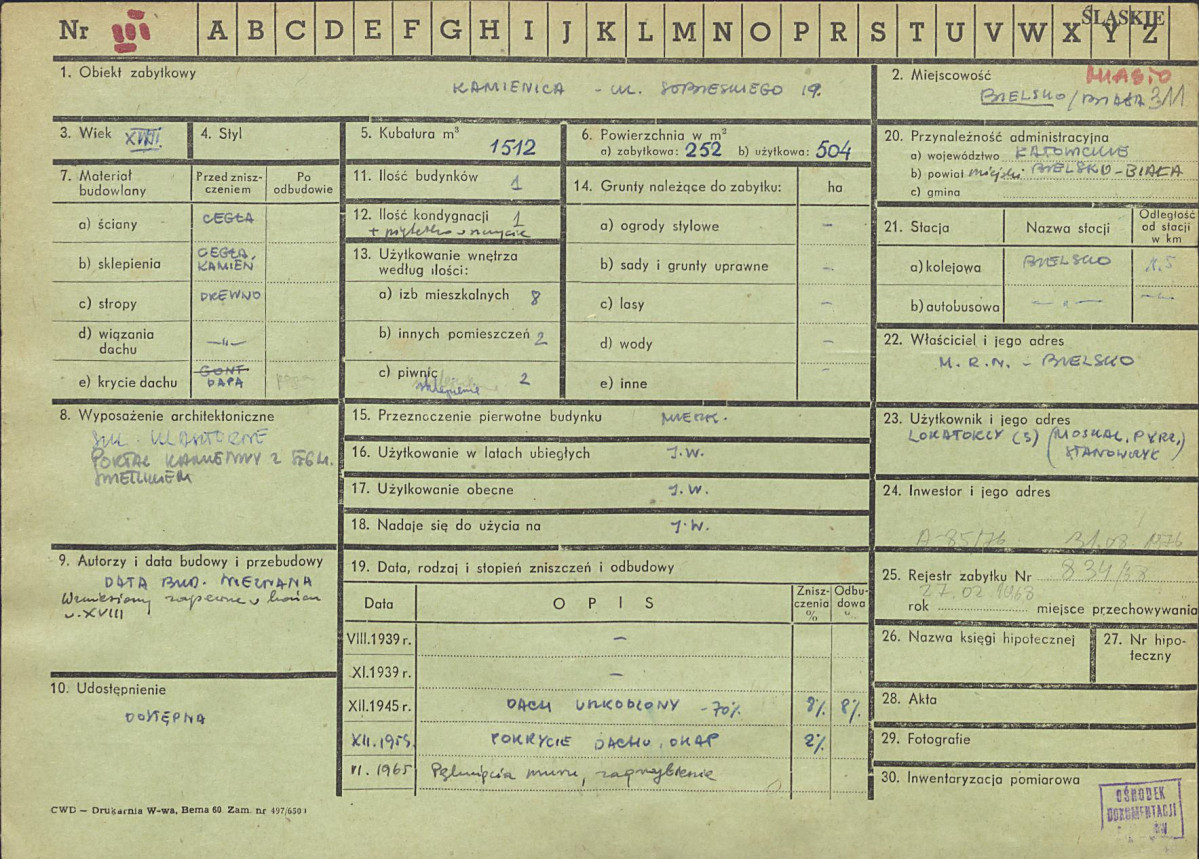 Nr III A B C D E F G H I J K L M N O P R S T U V W X Y Z
ŚLĄSKIE
1. Obiekt zabytkowy
KAMIENICA - UL. SOBIESKIEGO 19.
2. Miejscowość
MIASTO
BIELSKO/BIAŁA 311
3. Wiek XVIII.
4. Styl
5. Kubatura m³
1512
6. Powierzchnia w m²
a) zabytkowa: 252 b) użytkowa: 504
20. Przynależność administracyjna
a) województwo KATOWICKIE
b) powiat miejski BIELSKO-BIAŁA
c) gmina
7. Materiał budowlany
Przed zniszczeniem
Po odbudowie
a) ściany CEGŁA
b) sklepienia CEGŁA, KAMIEŃ
c) stropy DREWNO
d) wiązania dachu -"-
e) krycie dachu GONT PAPA
11. Ilość budynków 1
12. Ilość kondygnacji 1
13. Użytkowanie wnętrza
według ilości:
a) izb mieszkalnych 8
b) innych pomieszczeń 2
c) piwnic 2
sklepione
14. Grunty należące do zabytku: ha
a) ogrody stylowe -
b) sady i grunty uprawne -
c) lasy -
d) wody -
e) inne -
21. Stacja
Nazwa stacji
Odległość od stacji w km
a) kolejowa BIELSKO 1.5
b) autobusowa -"- -"-
22. Właściciel i jego adres
M.R.N. - BIELSKO
8. Wyposażenie architektoniczne
PORTAL KAMIENNY Z
15. Przeznaczenie pierwotne budynku MIESZK.
16. Użytkowanie w latach ubiegłych J.W.
17. Użytkowanie obecne J.W.
18. Nadaje się do użycia na J.W.
23. Użytkownik i jego adres
LOKATORZY (3) (MOSKAL,
STANOWCZYK)
24. Inwestor i jego adres
A-85/76 31.08.1976
9. Autorzy i data budowy i przebudowy
DATA BUD. NIEZNANA
Wzniesiony zapewne w końcu
w. XVIII
19. Data, rodzaj i stopień zniszczeń i odbudowy
Data
OPIS
Zniszczenia %
Odbudowa %
VIII.1939 r. -
XI.1939 r. -
XII.1945 r. DACH USZKODZONY -70% 8% 8%
XII.1959. POKRYCIE DACHU, OKAP 2%
VI. 1965 Pęknięcia muru, zagrzybienie
25. Rejestr zabytku Nr 834/68
27.02.1968
rok miejsce przechowywania
26. Nazwa księgi hipotecznej
27. Nr hipoteczny
10. Udostępnienie
DOSTĘPNA
28. Akta
29. Fotografie
30. Inwentaryzacja pomiarowa
OŚRODEK
DOKUMENTACJI
CWD — Drukarnia W-wa, Bema 60. Zam. nr 497/650